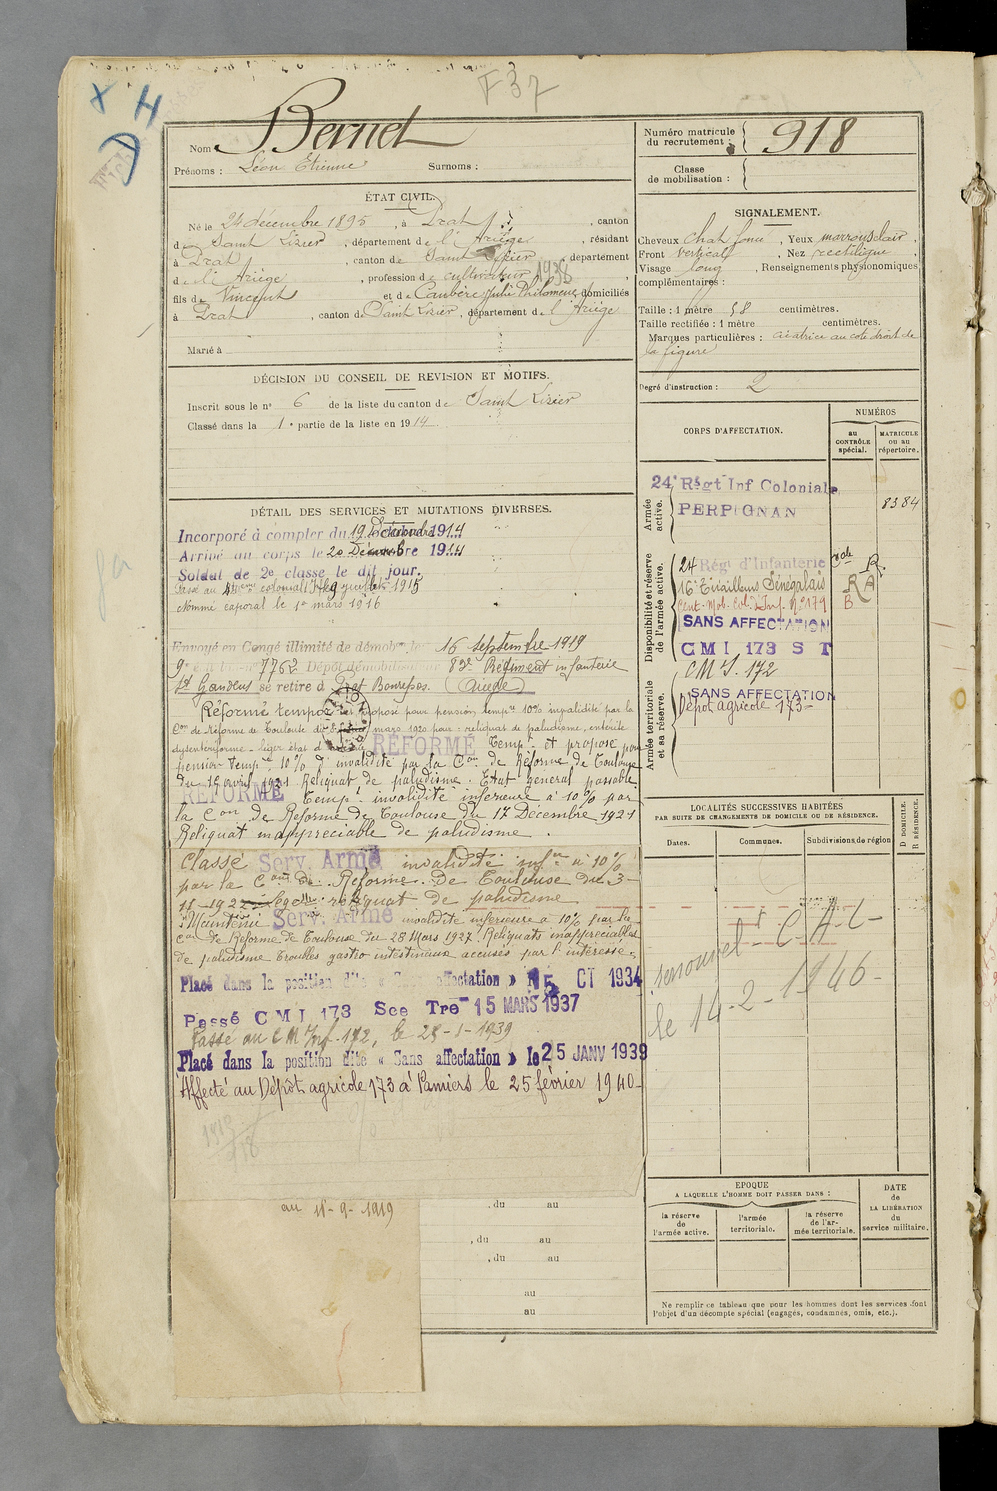 F37
x H
Nom Bernet
Prénoms : Léon Etienne Surnoms :
Numéro matricule du recrutement : 918
Classe de mobilisation :
ÉTAT CIVIL.
Né le 24 décembre 1895, à Prat, canton
de Saint Lizier, département de l'Ariège, résidant
à Prat, canton de Saint Lizier, département
de l'Ariège, profession de cultivateur 1938
fils de Vincent et de Caubère Julie Philomène, domiciliés
à Prat, canton de Saint Lizier, département de l'Ariège
Marié à
DÉCISION DU CONSEIL DE REVISION ET MOTIFS.
Inscrit sous le n° 6 de la liste du canton de Saint Lizier
Classé dans la 1e partie de la liste en 1914
SIGNALEMENT.
Cheveux chat foncé, Yeux marrons clair,
Front vertical, Nez rectiligne,
Visage long, Renseignements physionomiques
complémentaires :
Taille : 1 mètre 58 centimètres.
Taille rectifiée : 1 mètre centimètres.
Marques particulières : cicatrice au coté droit de
la figure
Degré d'instruction : 2
DÉTAIL DES SERVICES ET MUTATIONS DIVERSES.
Incorporé à compter du 19 Décembre 1914
Arrivé au corps le 20 Décembre 1914
Soldat de 2e classe le dit jour.
Passé au colonial le 9 juillet 1915
Nommé caporal le 1er mars 1916
Envoyé en Congé illimité de démobon le 16 septembre 1919
7762 Dépôt démobilisateur 83e Régiment infanterie
St Gaudens se retire à Prat Bonrepos. (Ariège)
Réformé tempor et proposé pour pension tempre 10% invalidité par la
Con de Réforme de Toulouse du mars 1920 pour : reliquat de paludisme, entérite
dysentériforme - léger état d'
RÉFORMÉ Tempt et proposé pour
pension tempre 10% d'invalidité par la Con de Réforme de Toulouse
du 12 avril 1921 Reliquat de paludisme. Etat général passable.
RÉFORMÉ Tempt invalidité inférieure à 10% par
la Con de Réforme de Toulouse du 17 Décembre 1921
Reliquat inappréciable de paludisme.
Classé Serv. Armé invalidité infre à 10%
par la Con De Réforme De Toulouse du 3-
11-1922 reliquat de paludisme
Maintenu Serv. Armé invalidité inférieure à 10% par la
Con de Réforme de Toulouse du 28 Mars 1927. Reliquats inappréciables
de paludisme troubles gastro intestinaux accusés par l'intéressé.
Placé dans la position dite « Sans affectation » 15 OCT 1934
Passé C M I 173 Sec Tre 15 MARS 1937
Passé au C M Inf. 172, le 28-1-1939
Placé dans la position dite « Sans affectation » le 25 JANV 1939
Affecté au Dépôt agricole 173 à Pamiers le 25 février 1940-
au 15-9-1919
, du au
, du au
, du au
au
au
CORPS D'AFFECTATION.
NUMÉROS
au CONTRÔLE spécial.
MATRICULE OU AU répertoire.
Armée active.
24e Régt Inf Coloniale
PERPIGNAN
8384
Disponibilité et réserve de l'armée active.
24 Régt d'Infanterie Cole R
16e Tirailleurs Sénégalais RA
Cent. Mob. Col. d'Inf. N°179 B
SANS AFFECTATION
C M I 173 S T
CM I. 172
Armée territoriale et sa réserve.
SANS AFFECTATION
Dépot agricole 173-
LOCALITÉS SUCCESSIVES HABITÉES
PAR SUITE DE CHANGEMENTS DE DOMICILE OU DE RÉSIDENCE.
Dates. Communes. Subdivisions de région
D DOMICILE.
R RÉSIDENCE.
renouvel C-A-C-
le 14-2-1946-
EPOQUE
A LAQUELLE L'HOMME DOIT PASSER DANS :
la réserve de l'armée active.
l'armée territoriale.
la réserve de l'armée territoriale.
DATE de LA LIBÉRATION du service militaire.
Ne remplir ce tableau que pour les hommes dont les services font
l'objet d'un décompte spécial (engagés, condamnés, omis, etc.).